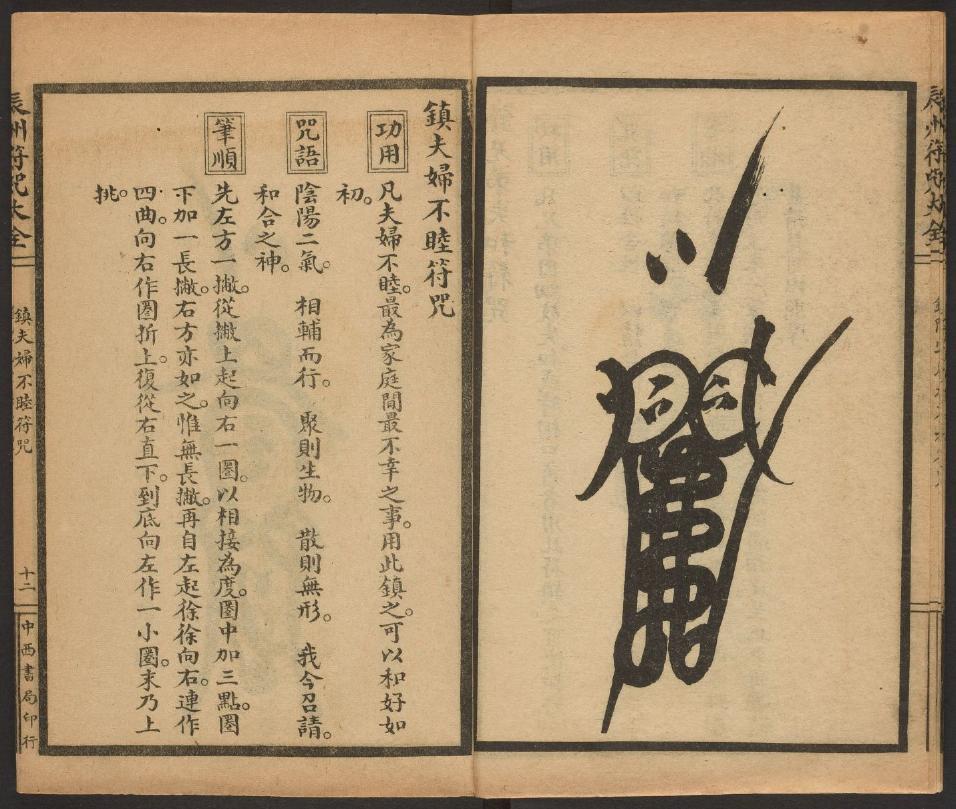 鎮夫婦不睦符咒
功用
凡夫婦不睦。最為家庭間最不幸之事。用此鎮之。可以和好如
初。
咒語
陰陽二氣。　相輔而行。　聚則生物。　散則無形。　我今召請。
和合之神。
筆順
先左方一撇。從撇上起向右一圈。以相接為度。圈中加三點。圈
下加一長撇。右方亦如之。惟無長撇。再自左起徐徐向右。連作
四曲。向右作圈折上。復從右直下。到底向左作一小圈。末乃上
挑。
辰州符咒大全
鎮夫婦不睦符咒
十二
中西書局印行